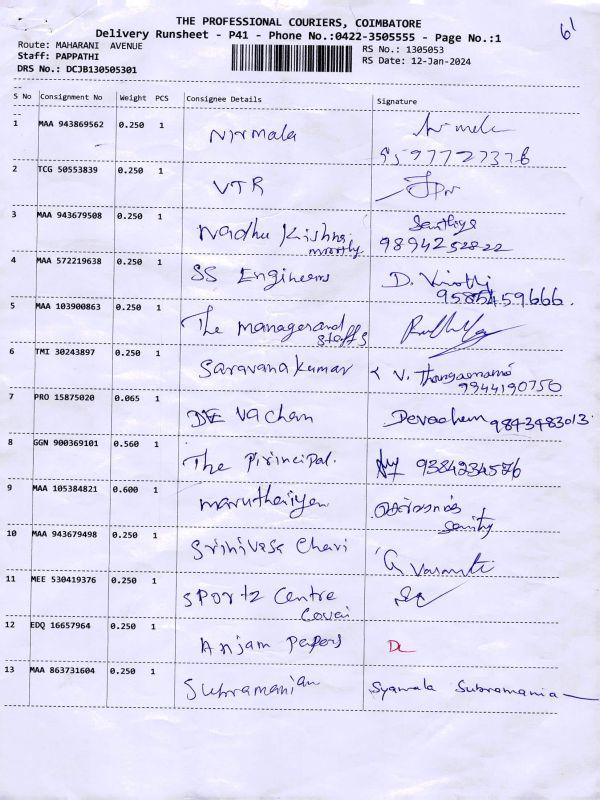 THE PROFESSIONAL COURIERS, COIMBATORE
61
Delivery Runsheet - P41 - Phone No.:0422-3505555 - Page No.:1
Route: MAHARANI AVENUE
RS No.: 1305053
Staff: PAPPATHI
RS Date: 12-Jan-2024
DRS No.: DCJB130505301
S No Consignment No Weight PCS Consignee Details Signature
1 MAA 943869562 0.250 1 Nirmala
9597727376
2 TCG 50553839 0.250 1 VTR
3 MAA 943679508 0.250 1 Nadhu Kishna Santhiya
moorthy 9894252822
4 MAA 572219638 0.250 1 SS Engineers D.
9585459666.
5 MAA 103900863 0.250 1 The manager and
staffs
6 TMI 30243897 0.250 1 Saravana kumar V.
9944190750
7 PRO 15875020 0.065 1 DE Vachan Devachem 9843483013
8 GGN 900369101 0.560 1 The Pirincipal. 9384234576
9 MAA 105384821 0.600 1 maruthaiyen
10 MAA 943679498 0.250 1 Srinivasa Chari G Vasanti
11 MEE 530419376 0.250 1 SPortz Centre
Covai
12 EDQ 16657964 0.250 1 Anjam papers
13 MAA 863731604 0.250 1 Subramanian Syamala Subramania